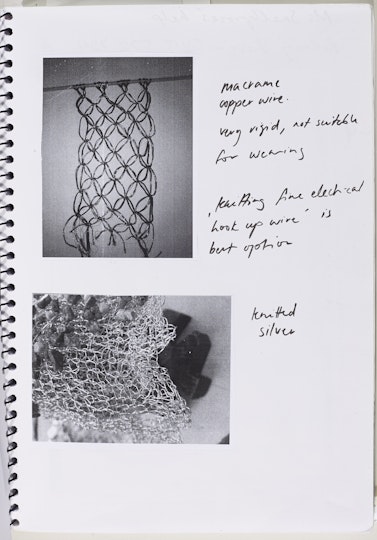 macrame
copper wire.
very rigid, not suitable
for wearing
'knitting fine electical
hook up wire' is
best option
knitted
silver